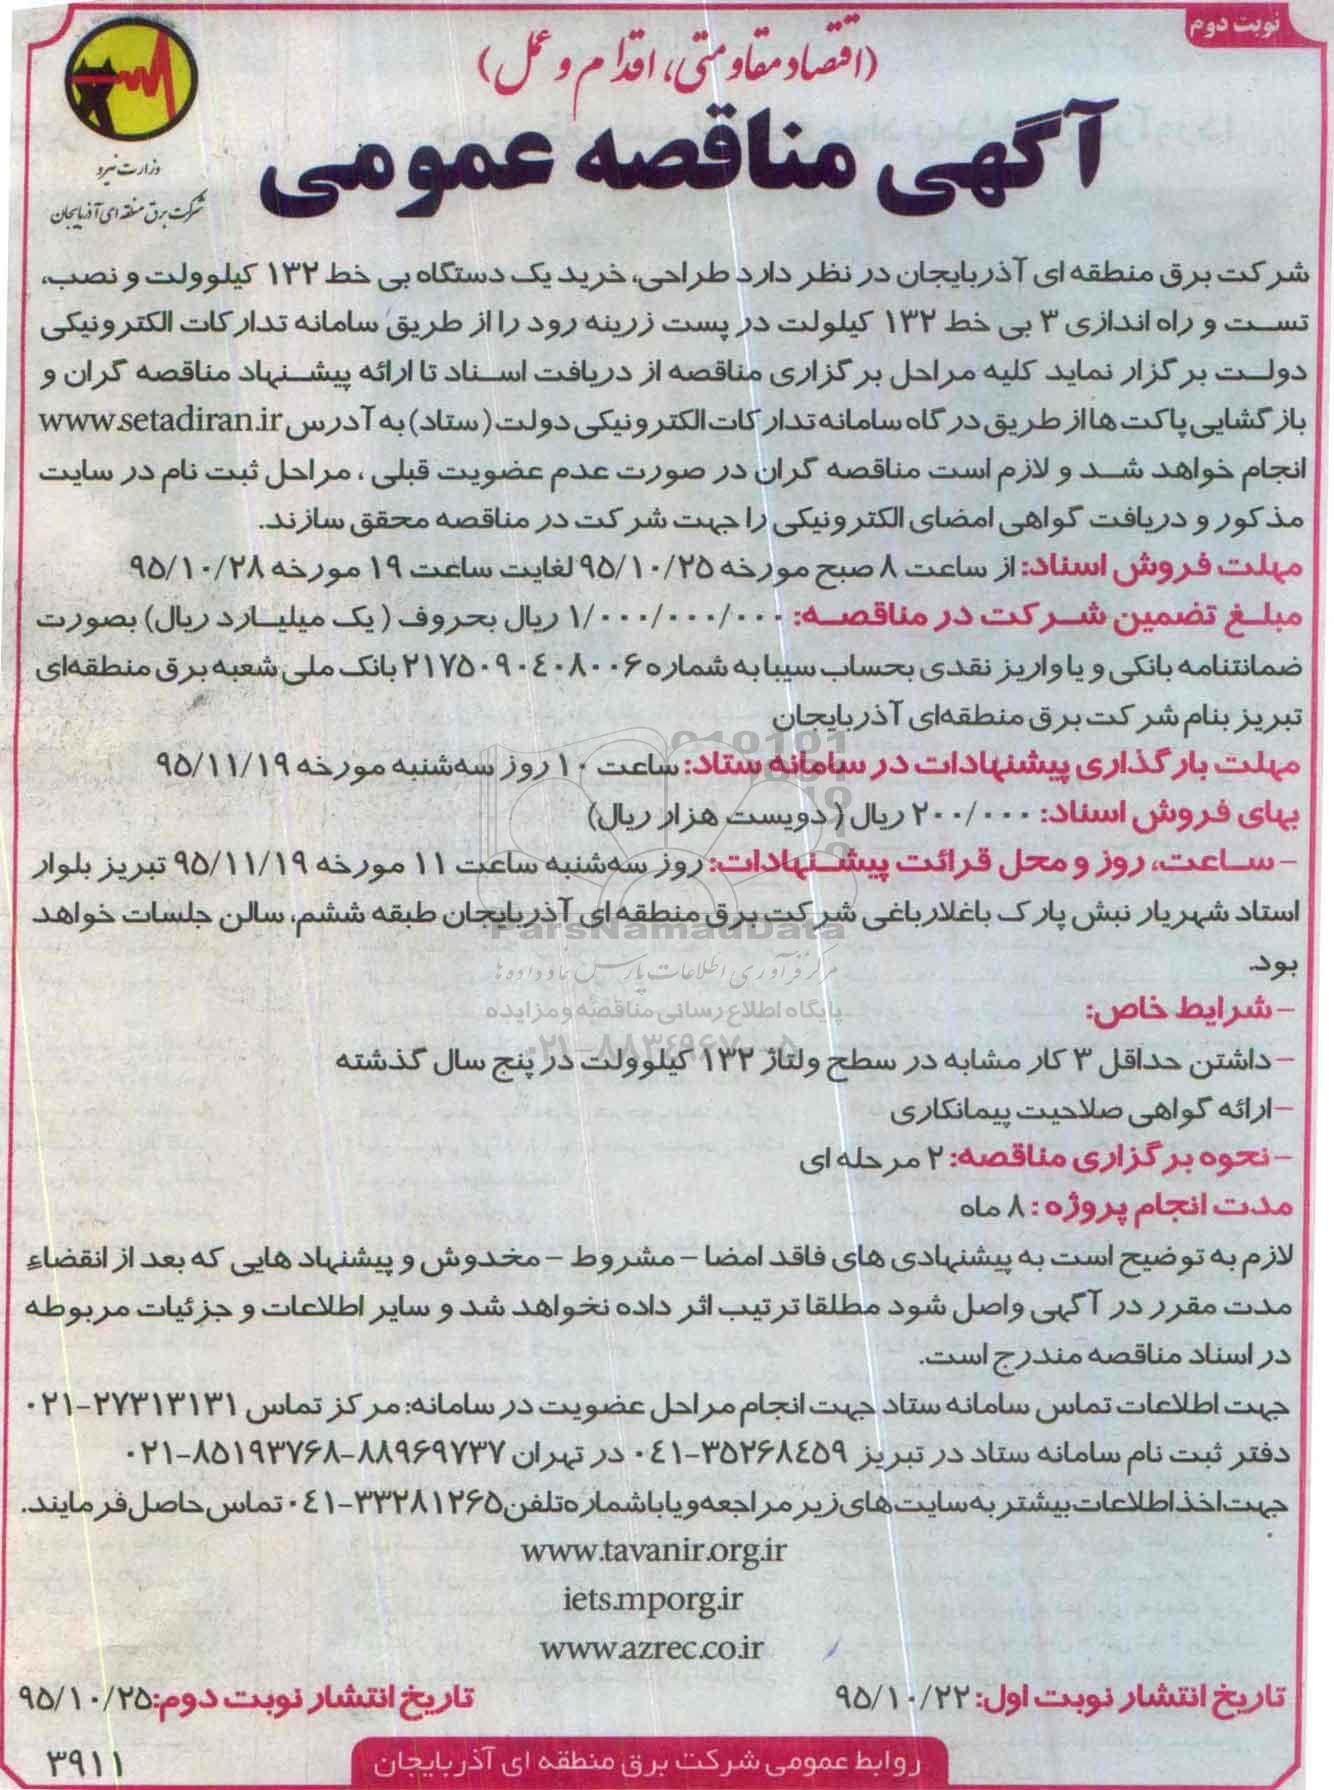 نوبت دوم
(اقتصاد مقاومتی، اقدام و عمل)
آگهی مناقصه عمومی
وزارت نیرو
شرکت برق منطقه ای آذربایجان
شرکت برق منطقه ای آذربایجان در نظر دارد طراحی، خرید یک دستگاه بی خط ۱۳۲ کیلوولت و نصب،
تست و راه اندازی ۳ بی خط ۱۳۲ کیلولت در پست زرینه رود را از طریق سامانه تدارکات الکترونیکی
دولت برگزار نماید کلیه مراحل برگزاری مناقصه از دریافت اسناد تا ارائه پیشنهاد مناقصه گران و
بازگشایی پاکت ها از طریق درگاه سامانه تدارکات الکترونیکی دولت (ستاد) به آدرس www.setadiran.ir
انجام خواهد شد و لازم است مناقصه گران در صورت عدم عضویت قبلی ، مراحل ثبت نام در سایت
مذکور و دریافت گواهی امضای الکترونیکی را جهت شرکت در مناقصه محقق سازند.
مهلت فروش اسناد: از ساعت ۸ صبح مورخه ۹۵/۱۰/۲۵ لغایت ساعت ۱۹ مورخه ۹۵/۱۰/۲۸
مبلغ تضمین شرکت در مناقصه: ۱/۰۰۰/۰۰۰/۰۰۰ ریال بحروف ( یک میلیارد ریال) بصورت
ضمانتنامه بانکی و یا واریز نقدی بحساب سیبا به شماره ۲۱۷۵۰۹۰۴۰۸۰۰۶ بانک ملی شعبه برق منطقه‌ای
تبریز بنام شرکت برق منطقه‌ای آذربایجان
مهلت بارگذاری پیشنهادات در سامانه ستاد: ساعت ۱۰ روز سه‌شنبه مورخه ۹۵/۱۱/۱۹
بهای فروش اسناد: ۲۰۰/۰۰۰ ریال (دویست هزار ریال)
- ساعت، روز و محل قرائت پیشنهادات: روز سه‌شنبه ساعت ۱۱ مورخه ۹۵/۱۱/۱۹ تبریز بلوار
استاد شهریار نبش پارک باغلارباغی شرکت برق منطقه ای آذربایجان طبقه ششم، سالن جلسات خواهد
بود.
ParsNamadData
مرکز فرآوری اطلاعات پارس نماد داده ها
پایگاه اطلاع رسانی مناقصه و مزایده
۰۲۱-۸۸۳۴۹۶۷۰-۵
- شرایط خاص:
- داشتن حداقل ۳ کار مشابه در سطح ولتاژ ۱۳۲ کیلوولت در پنج سال گذشته
- ارائه گواهی صلاحیت پیمانکاری
- نحوه برگزاری مناقصه: ۲ مرحله ای
مدت انجام پروژه : ۸ ماه
لازم به توضیح است به پیشنهادی های فاقد امضا - مشروط - مخدوش و پیشنهاد هایی که بعد از انقضاء
مدت مقرر در آگهی واصل شود مطلقا ترتیب اثر داده نخواهد شد و سایر اطلاعات و جزئیات مربوطه
در اسناد مناقصه مندرج است.
جهت اطلاعات تماس سامانه ستاد جهت انجام مراحل عضویت در سامانه: مرکز تماس ۲۷۳۱۳۱۳۱-۰۲۱
دفتر ثبت نام سامانه ستاد در تبریز ۳۵۲۶۸۴۵۹-۰۴۱ در تهران ۸۸۹۶۹۷۳۷-۸۵۱۹۳۷۶۸-۰۲۱
جهت اخذ اطلاعات بیشتر به سایت های زیر مراجعه و یا با شماره تلفن ۳۳۲۸۱۲۶۵-۰۴۱ تماس حاصل فرمایند.
www.tavanir.org.ir
iets.mporg.ir
www.azrec.co.ir
تاریخ انتشار نوبت اول: ۹۵/۱۰/۲۲
تاریخ انتشار نوبت دوم: ۹۵/۱۰/۲۵
روابط عمومی شرکت برق منطقه ای آذربایجان
۳۹۱۱